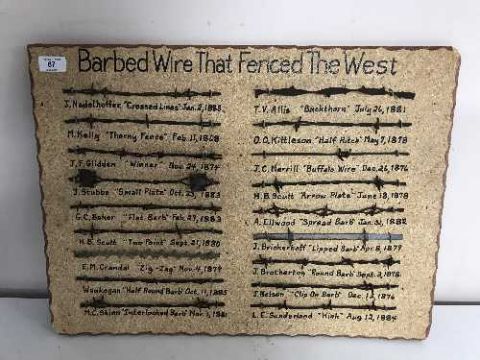 67
Barbed Wire That Fenced The West
J. Nadelhoffer "Crossed Lines" Jan. 2, 1885
M. Kelly "Thorny Fence" Feb. 11, 1868
J. F. Glidden "Winner" Nov. 24, 1874
J. Stubbs "Small Plate" Oct. 23, 1883
G. C. Baker "Flat Barb" Feb. 27, 1883
H. B. Scutt "Two Point" Sept. 21, 1880
E. M. Crandal "Zig-Zag" Nov. 4, 1879
Waukegan "Half Round Barb" Oct. 11, 1885
M. C. Shinn "Interlocked Barb" Nov. 1, 1881
T. V. Allis "Buckthorn" July 26, 1881
O. O. Kittleson "Half Hitch" May 7, 1878
J. C. Merrill "Buffalo Wire" Dec. 26, 1876
H. B. Scutt "Arrow Plate" June 18, 1878
A. Ellwood "Spread Barb" Jan. 31, 1882
J. Brinkerhoff "Lipped Barb" Apr. 8, 1879
J. Brotherton "Round Barb" Sept. 3, 1878
J. Nelson "Clip On Barb" Dec. 12, 1876
L. E. Sunderland "Kink" Aug. 12, 1884